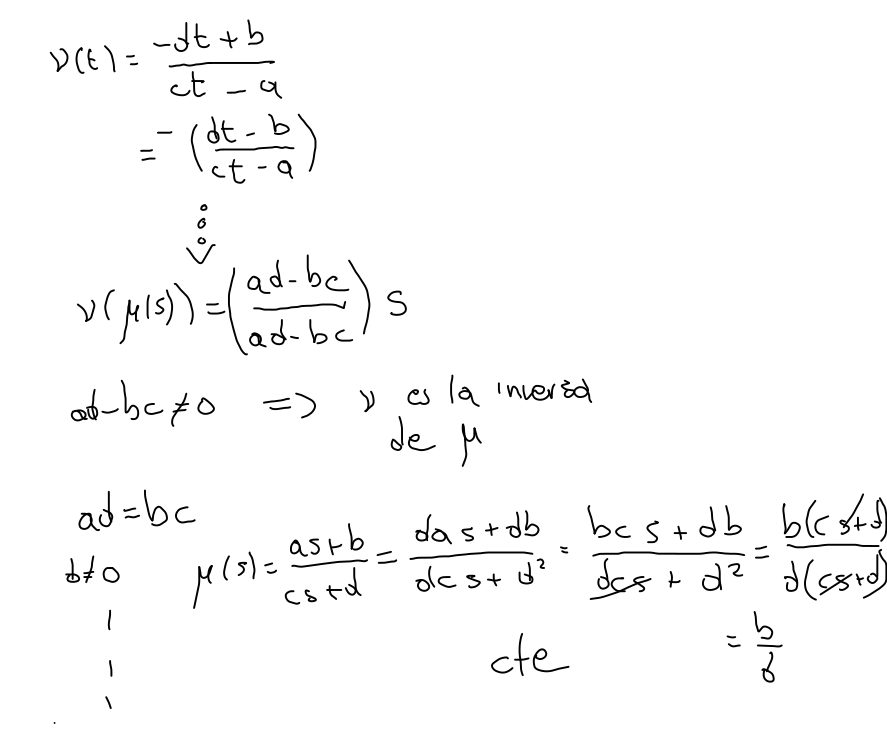 ν(t) = (-dt + b)/(ct - a)
= -((dt - b)/(ct - a))
ν(μ(s)) = ((ad - bc)/(ad - bc)) s
ad - bc ≠ 0 => ν es la inversa
de μ
ad = bc
d ≠ 0 μ(s) = (as + b)/(cs + d) = (das + db)/(dcs + d²) = (bcs + db)/(dcs + d²) = (b(cs + d))/(d(cs + d))
cte = b/d